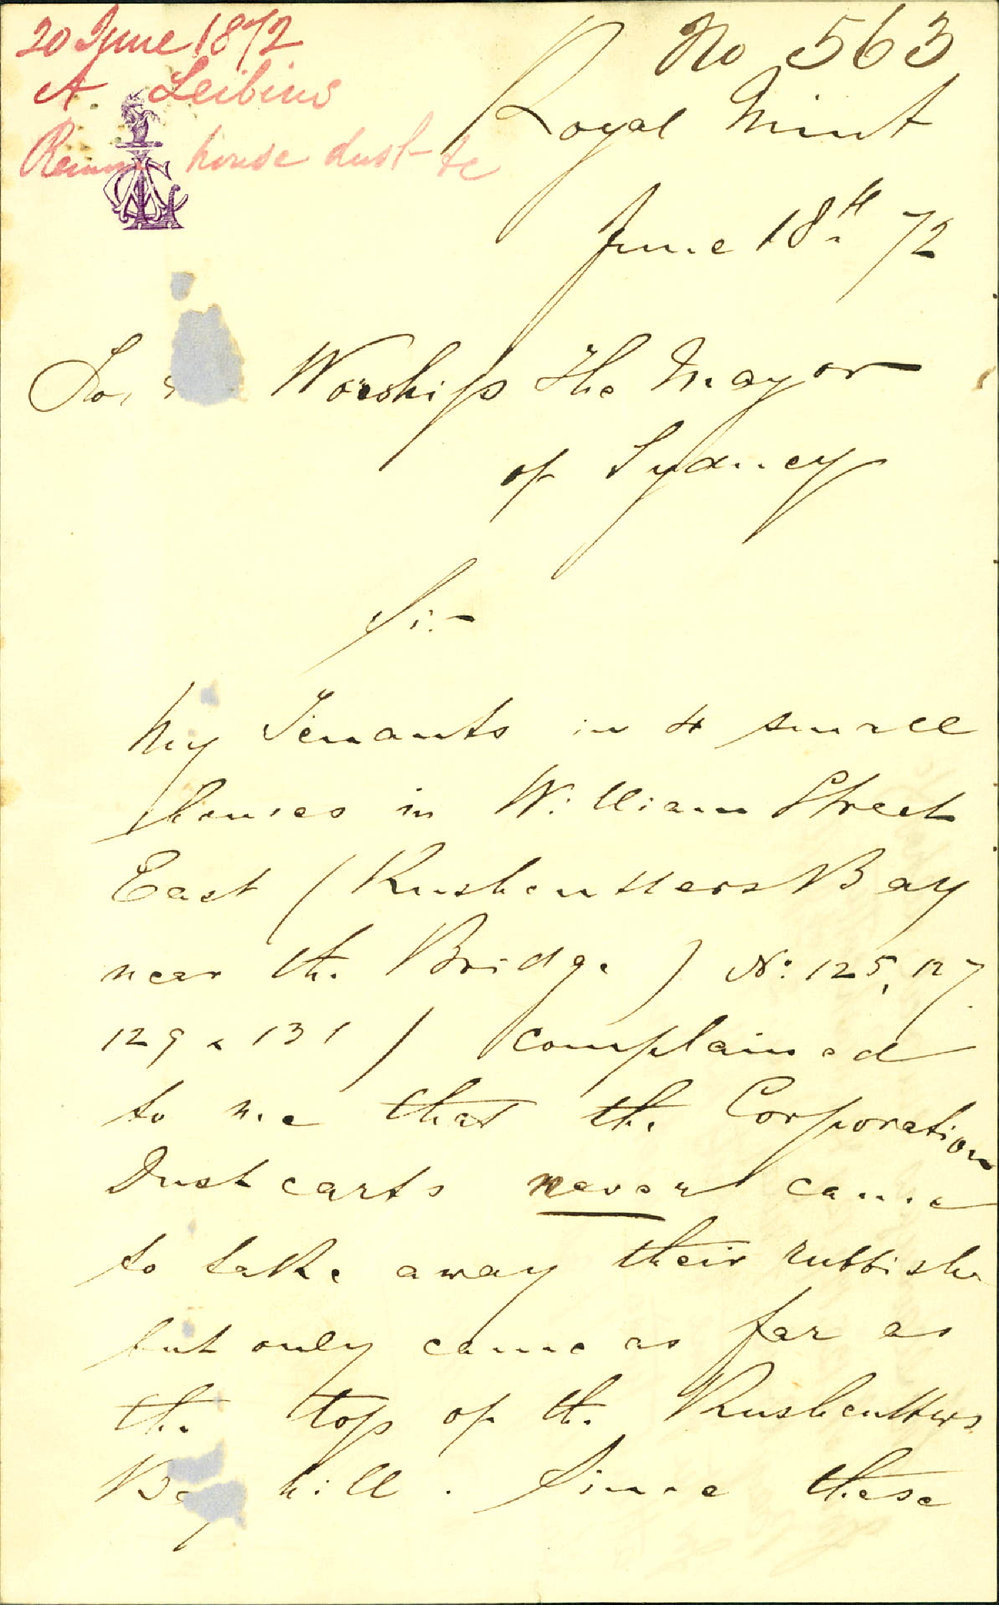 20 June 1872
A. Leibius
house dust &c
No 563
Royal Mint
June 18th 72
To Worship The Mayor
of Sydney
Sir
My Tenants in 4 small
houses in William Street
East (Rushcutters Bay
near the Bridge) No: 125, 127
129 & 131) complained
to me that the Corporation
Dust carts never came
to take away their rubbish
but only came as far as
the top of the Rushcutters
Bay hill. Since these